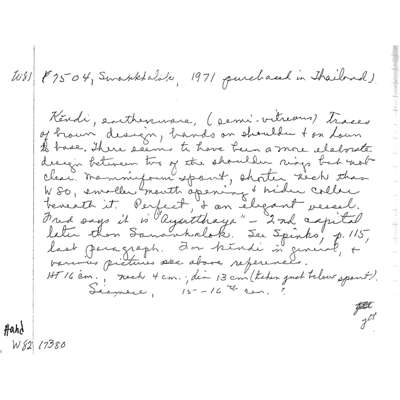 W81 P7504, Sawankhalok, 1971 purchased in Thailand)
Kendi, earthenware, (semi-vitreous) Traces
of brown design, bands on shoulder & on down
to base. There seems to have been a more elaborate
design between two of the shoulder rings but not
clear. Mammiform spout, shorter neck than
W80, smaller mouth opening & wider collar
beneath it. Perfect, & an elegant vessel.
Fred says it is "Ayutthaya" - 2nd capital
later than Sawankalok. See Spinks, p. 115,
last paragraph. For kindi in general, &
various pictures see above references.
HT 16 cm., neck 4 cm.; dia 13 cm (taken just below spout).
Siamese, 15-16th cen. ?
Hahd
W82 17380